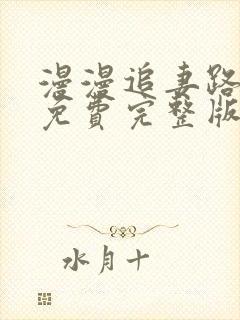 漫漫追妻路
免費完整版
水月十